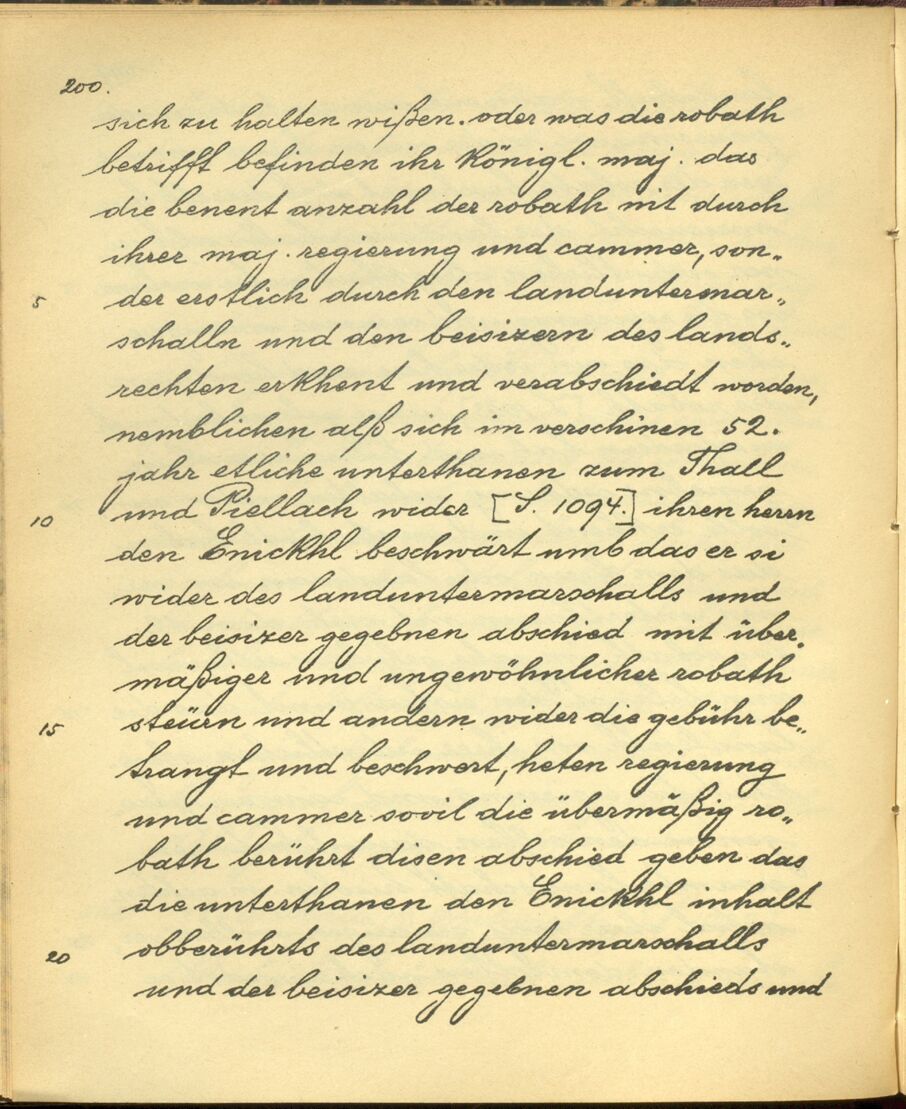 200.
sich zu halten wißen. oder was die robath
betrifft befinden ihr Königl. maj. das
die benent anzahl der robath nit durch
ihrer maj. regierung und cammer, son„
5 der erstlich durch den landuntermar„
schalln und den beisizern des lands„
rechten erkhent und verabschiedt worden,
nemblichen alß sich im verschinen 52.
jahr etliche unterthanen zum Thall
10 und Piellach wider [S. 1094.] ihren herrn
den Enickhl beschwärt umb das er si
wider des landuntermarschalls und
der beisizer gegebnen abschied mit über„
mäßiger und ungewöhnlicher robath
15 steürn und andern wider die gebühr be„
trangt und beschwert, heten regierung
und cammer sovil die übermäßig ro„
bath berührt disen abschied geben das
die unterthanen den Enickhl inhalt
20 obberührts des landuntermarschalls
und der beisizer gegebnen abschieds und